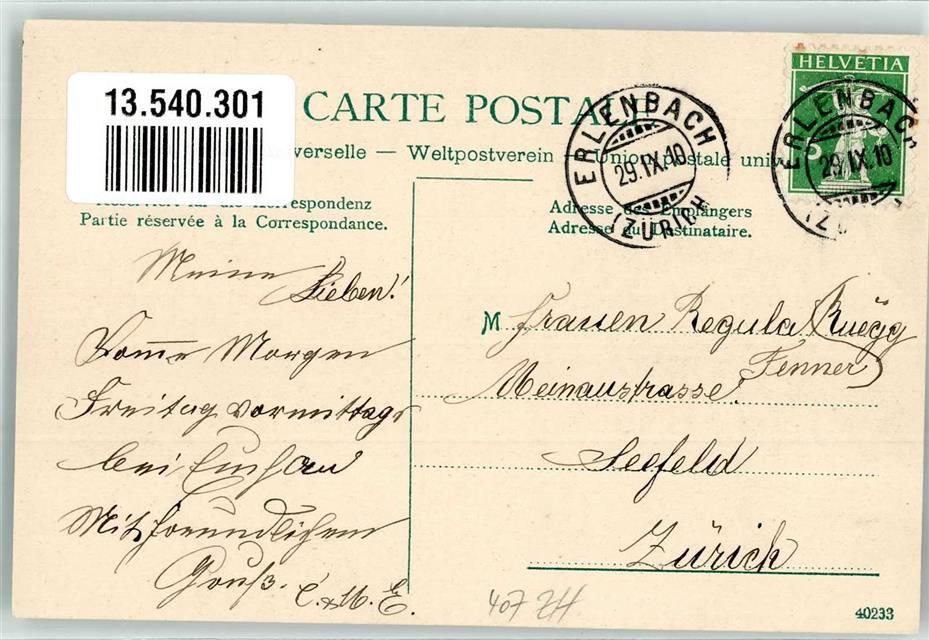 13.540.301
CARTE POSTALE
verselle — Weltpostverein — Union postale univ
HELVETIA
5
ERLENBACH
29.IX.10
(ZÜRICH)
ERLENBACH
29.IX.10
(ZÜ
Korrespondenz
Partie réservée à la Correspondance.
Adresse des Empfängers
Adresse du Destinataire.
Meine Lieben!
Kom̅e Morgen
Freitag vormittags
bei
Mit freundlichem
Gruß. C. & M. E.
M Frauen Regula Rüegg
Fenner
Meinaustrasse.
Seefeld
Zürich
407 ZH
40233